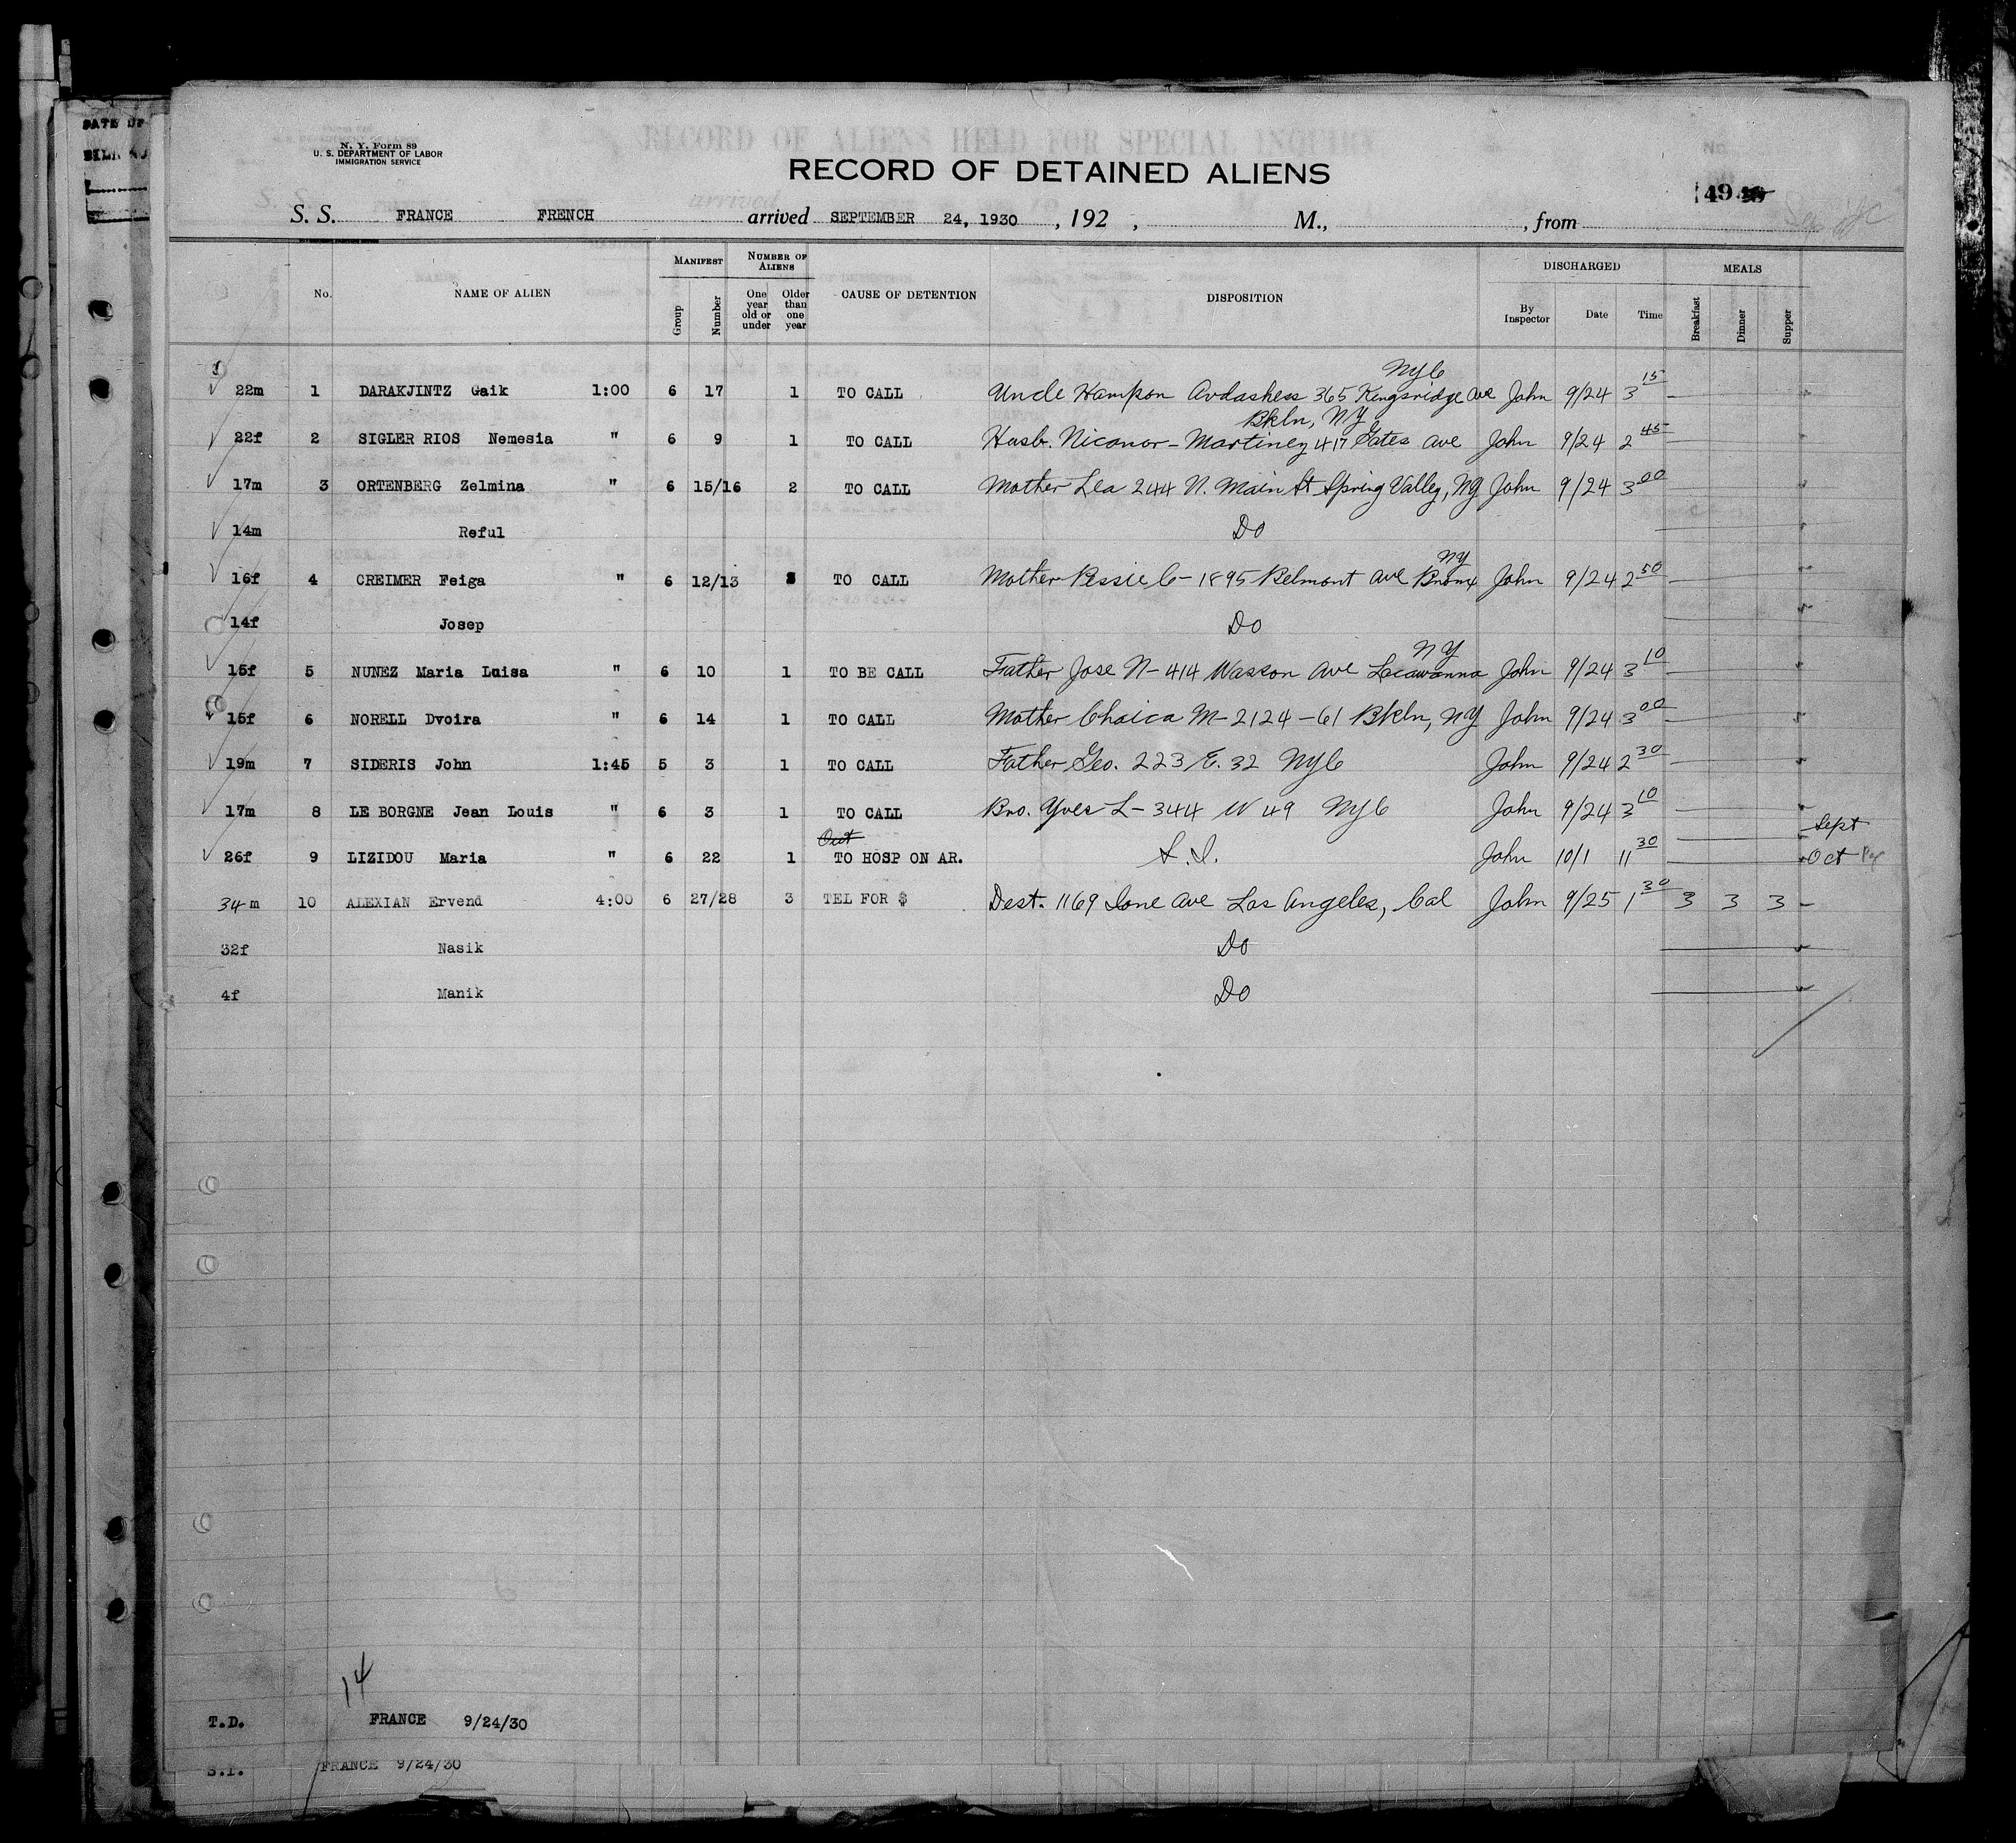 DATE OF
RECORD OF ALIENS HELD FOR SPECIAL INQUIRY
N. Y. Form 89
U. S. DEPARTMENT OF LABOR
IMMIGRATION SERVICE
RECORD OF DETAINED ALIENS
49
S. S. FRANCE FRENCH arrived SEPTEMBER 24, 1930 , 192 , M., , from
No. NAME OF ALIEN MANIFEST Group Number NUMBER OF ALIENS One year old or under Older than one year CAUSE OF DETENTION DISPOSITION DISCHARGED By Inspector Date Time MEALS Breakfast Dinner Supper
NYC
22m 1 DARAKJINTZ Gaik 1:00 6 17 1 TO CALL Uncle Hampon Avdashess 365 Kingsridge Ave John 9/24 3 15
Bkln, NY
22f 2 SIGLER RIOS Nemesia " 6 9 1 TO CALL Husb. Nicanor - Martinez 417 Gates Ave John 9/24 2 45
17m 3 ORTENBERG Zelmina " 6 15/16 2 TO CALL Mother Lea 244 N. Main St Spring Valley, NY John 9/24 3 00
14m Reful Do
NY
16f 4 CREIMER Feiga " 6 12/13 TO CALL Mother Pessie C - 1895 Belmont Ave Bronx John 9/24 2 50
14f Josep Do
NY
15f 5 NUNEZ Maria Luisa " 6 10 1 TO BE CALL Father Jose N - 414 Wasson Ave Lacawanna John 9/24 3 10
15f 6 NORELL Dvoira " 6 14 1 TO CALL Mother Chaica M - 2124 - 61 Bkln, NY John 9/24 3 00
19m 7 SIDERIS John 1:45 5 3 1 TO CALL Father Geo. 223 E. 32 NYC John 9/24 2 30
17m 8 LE BORGNE Jean Louis " 6 3 1 TO CALL Bro. Yves L - 344 W 49 NYC John 9/24 3 10
Out Sept
26f 9 LIZIDOU Maria " 6 22 1 TO HOSP ON AR. S.I. John 10/1 11 30 Oct
34m 10 ALEXIAN Ervend 4:00 6 27/28 3 TEL FOR $ Dest. 1169 Ione Ave Los Angeles, Cal John 9/25 1 30 3 3 3
32f Nasik Do
4f Manik Do
14
T.D. FRANCE 9/24/30
S.I. FRANCE 9/24/30